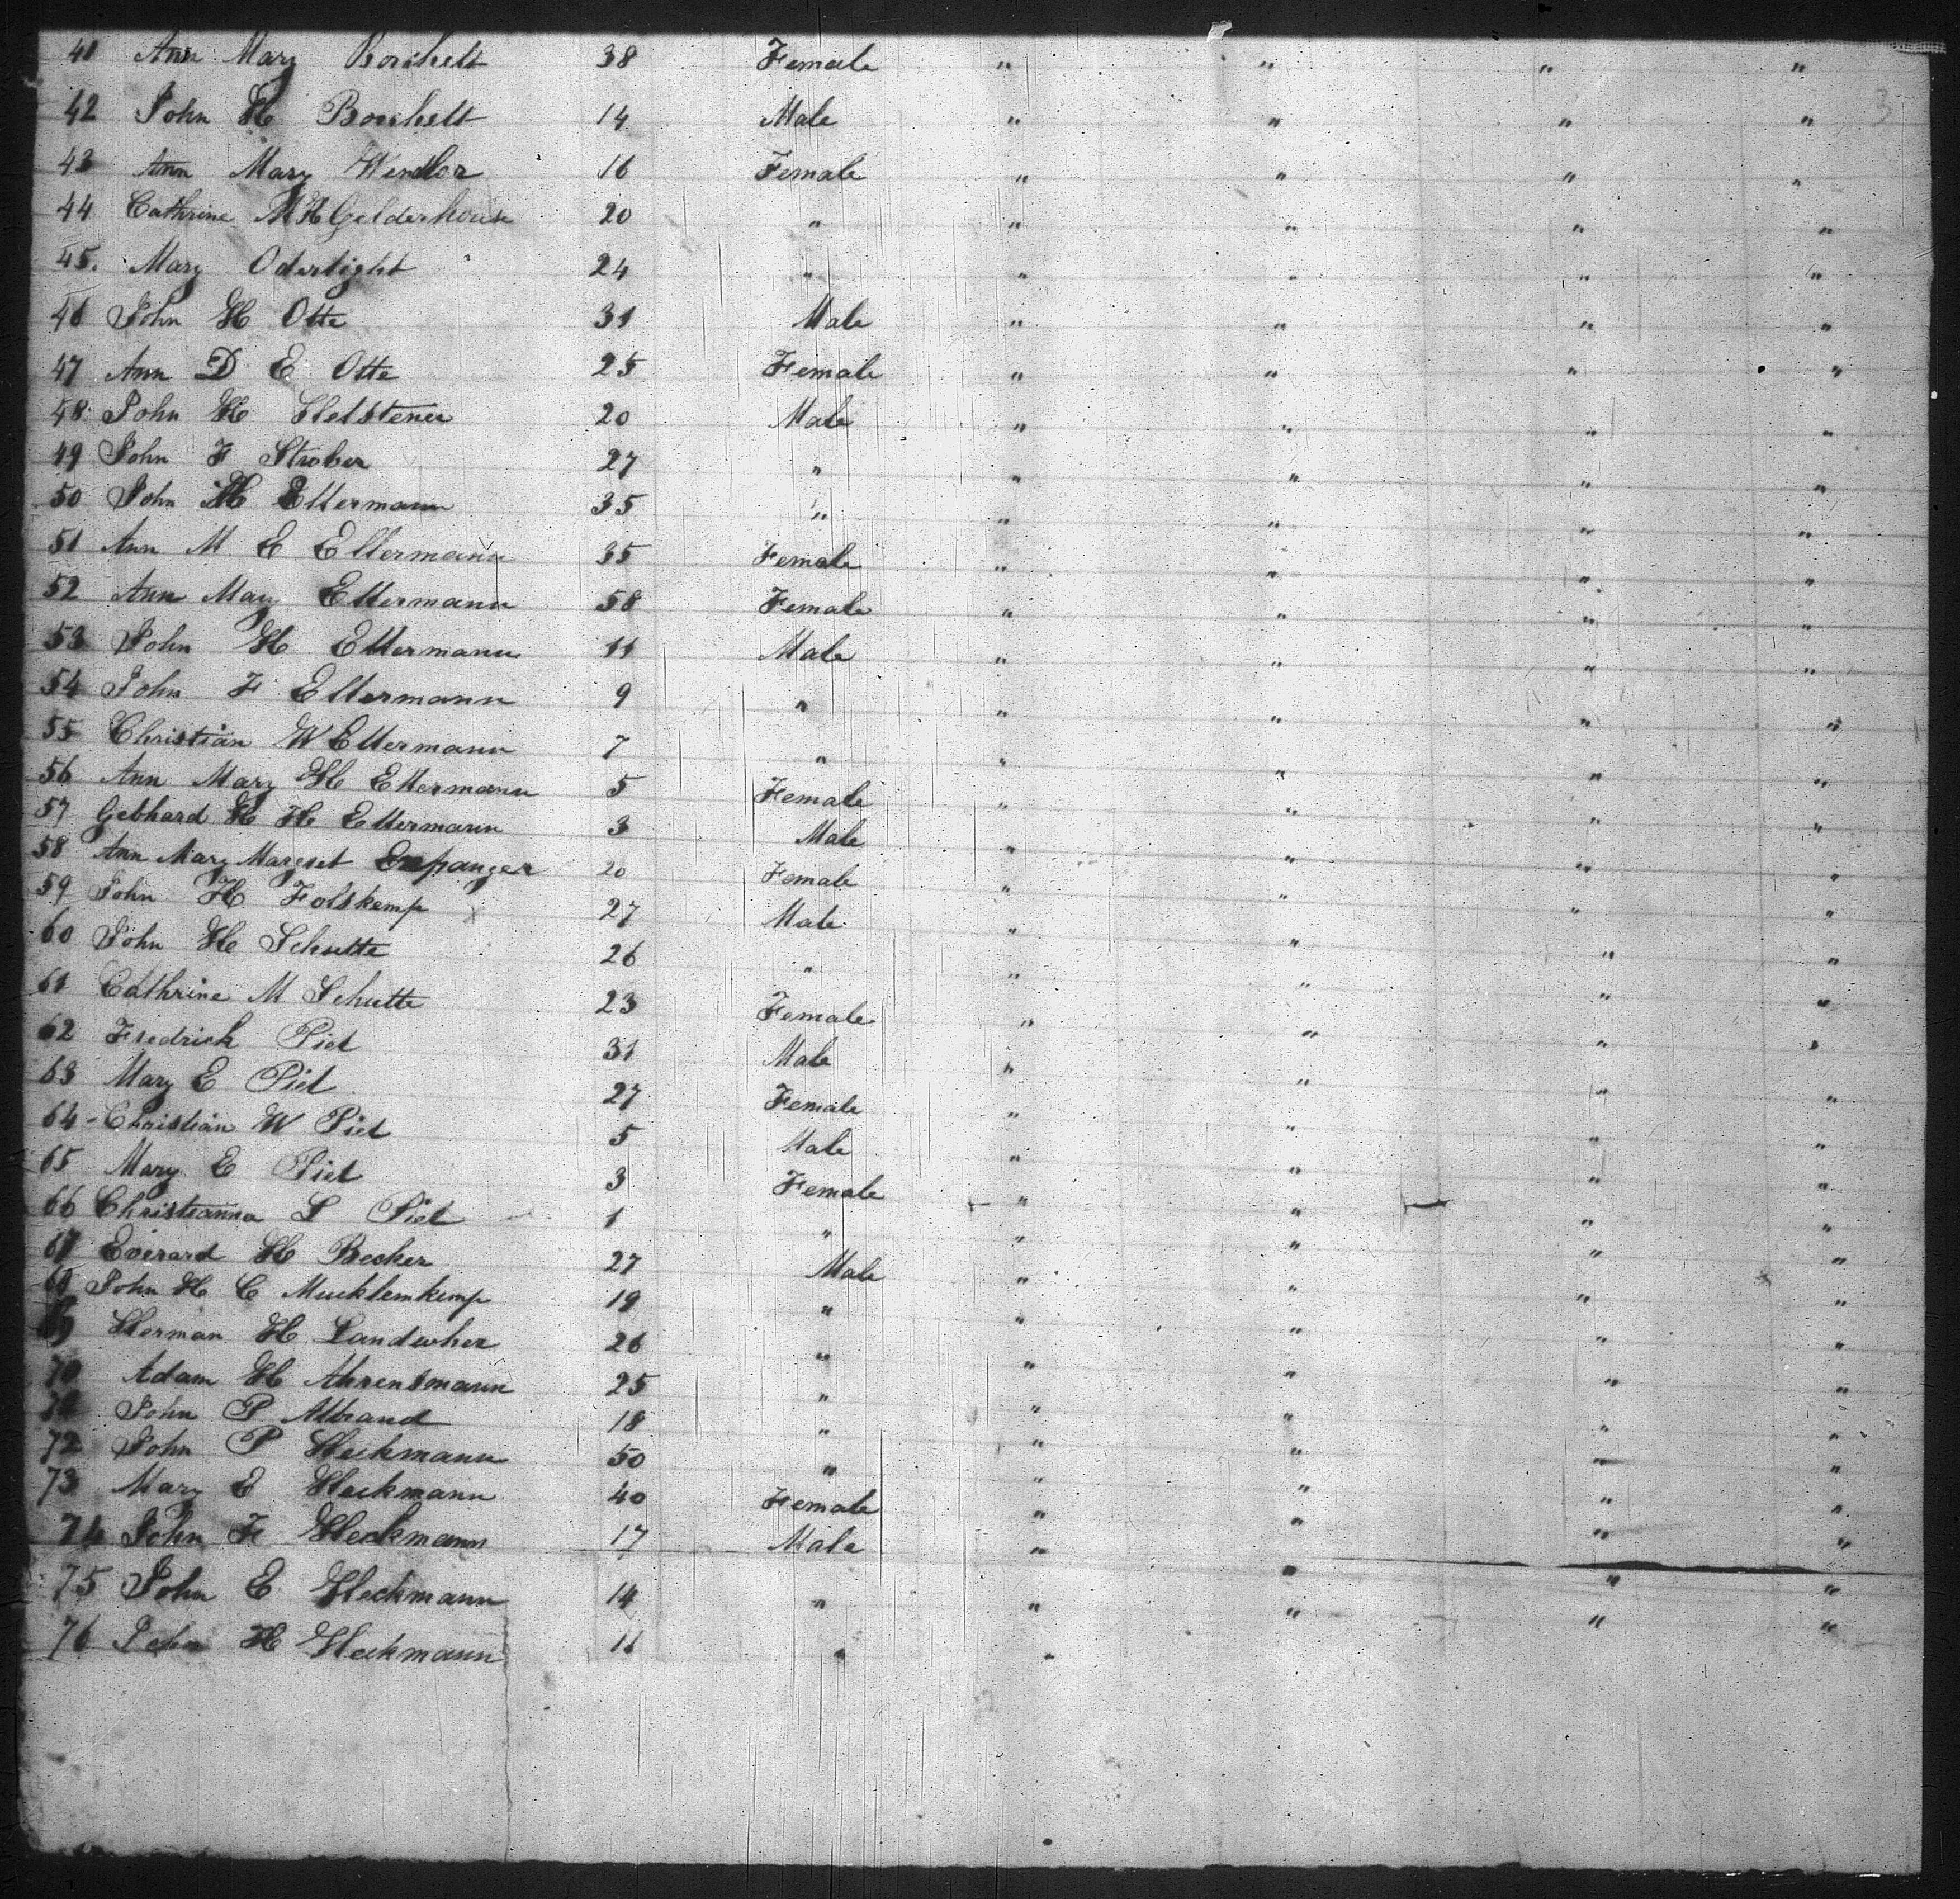 3
41 Ann Mary Borchelt 38 Female " " " "
42 John H Borchelt 14 Male " " " "
43 Ann Mary Wendlor 16 Female " " " "
44 Cathrine M H Gelderhouse 20 " " " " "
45. Mary Oderlight 24 " " " " "
46 John H Otte 31 Male " " " "
47 Ann D E Otte 25 Female " " " "
48 John H Helstener 20 Male " " " "
49 John F Strober 27 " " " " "
50 John H Ellermann 35 " " " " "
51 Ann M E Ellermann 35 Female " " " "
52 Ann Mary Ellermann 58 Female " " " "
53 John H Ellermann 11 Male " " " "
54 John F Ellermann 9 " " " " "
55 Christian W Ellermann 7 " " " " "
56 Ann Mary H Ellermann 5 Female " " " "
57 Gebhard H H Ellermann 3 Male " " " "
58 Ann Mary Margret 20 Female " " " "
59 John H Folskemp 27 Male " " " "
60 John H Schutte 26 " " " " "
61 Cathrine M Schutte 23 Female " " " "
62 Fredrick Piel 31 Male " " " "
63 Mary E Piel 27 Female " " " "
64 - Christian W Piel 5 Male " " " "
65 Mary E Piel 3 Female " " " "
66 Christianna L Piel 1 " " " " "
67 Everard H Becker 27 Male " " " "
68 John H C Mucklemkemp 19 " " " " "
69 Herman H Landwher 26 " " " " "
70 Adam H Ahrensmann 25 " " " " "
John P Albrand 18 " " " " "
72 John P Heckmann 50 " " " " "
73 Mary E Heckmann 40 Female " " " "
74 John F Heckmann 17 Male " " " "
75 John E Heckmann 14 " " " " "
76 John H Heckmann 11 " " " " "